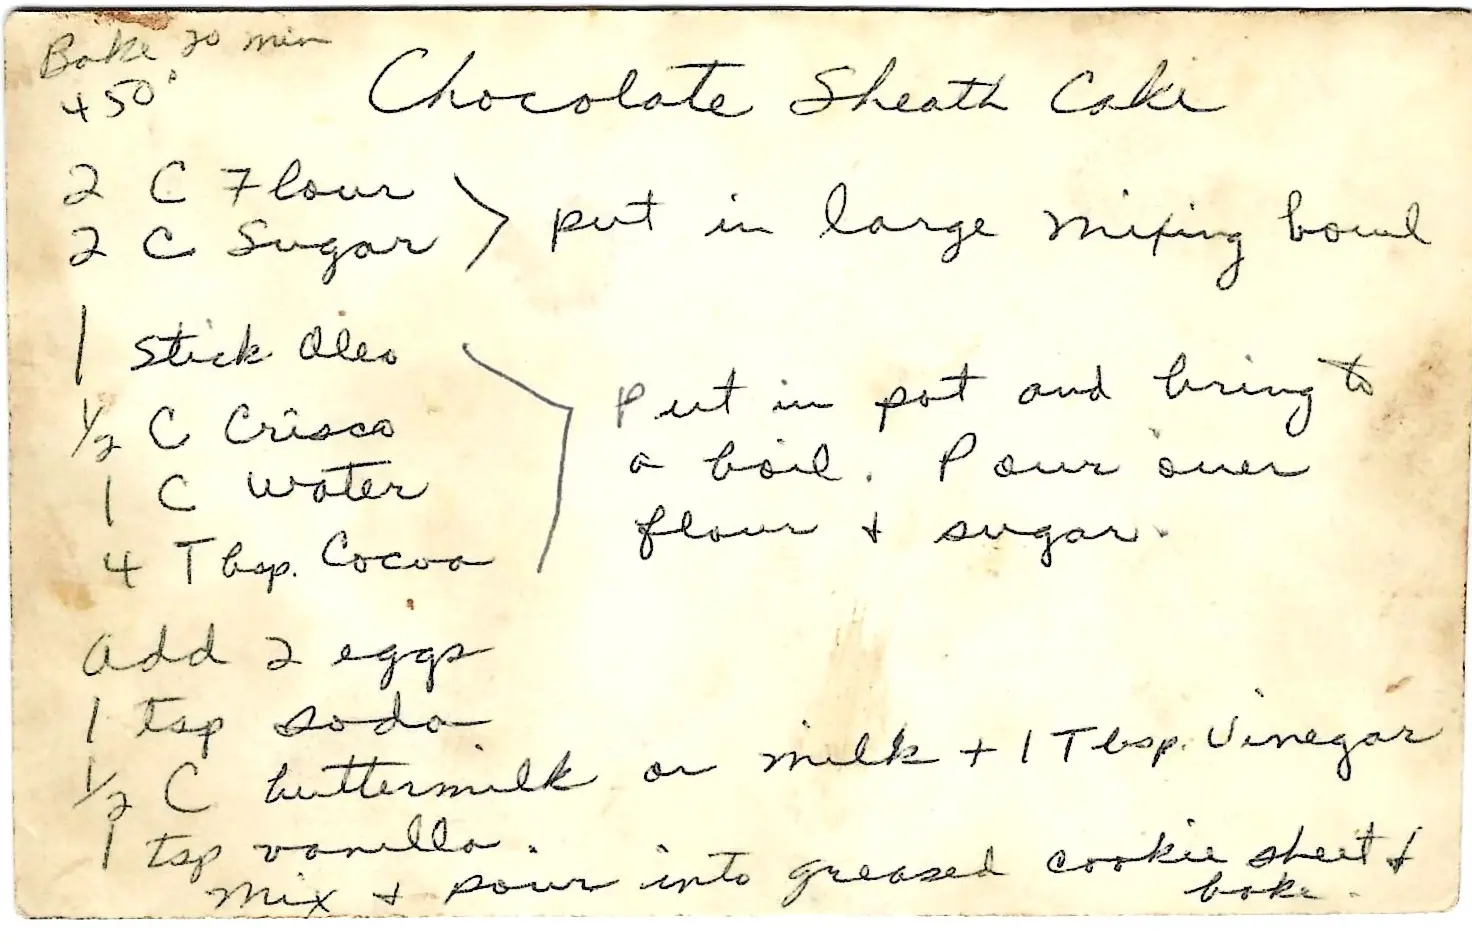 Bake 20 min
450°
Chocolate Sheath Cake
2 C Flour
2 C Sugar
put in large mixing bowl
1 Stick Oleo
1/2 C Crisco
1 C Water
4 Tbsp. Cocoa
Put in pot and bring to
a boil. Pour over
flour + sugar.
Add 2 eggs
1 tsp soda
1/2 C buttermilk or milk + 1 Tbsp. Vinegar
1 tsp vanilla.
Mix + pour into greased cookie sheet +
bake.